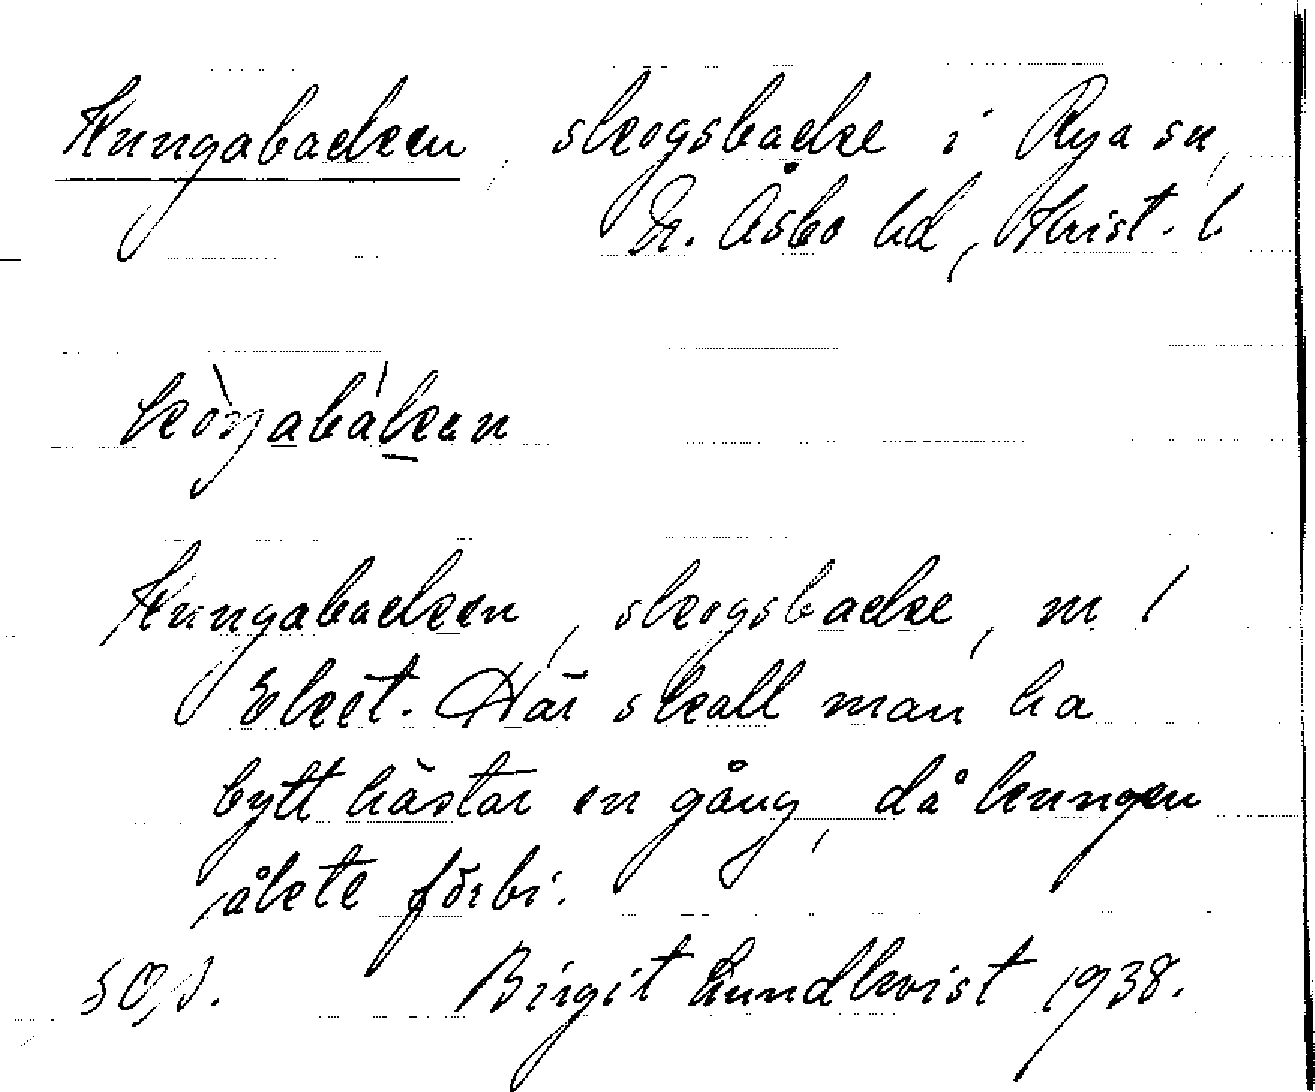 Kungabacken, skogsbacke i Rya sn,
N. Åsbo hd, Krist. l
Kungabacken, skogsbacke, m
Eket. Här skall man ha
bytt hästar en gång, då kungen
åkte förbi.
Birgit Lundkvist 1938.